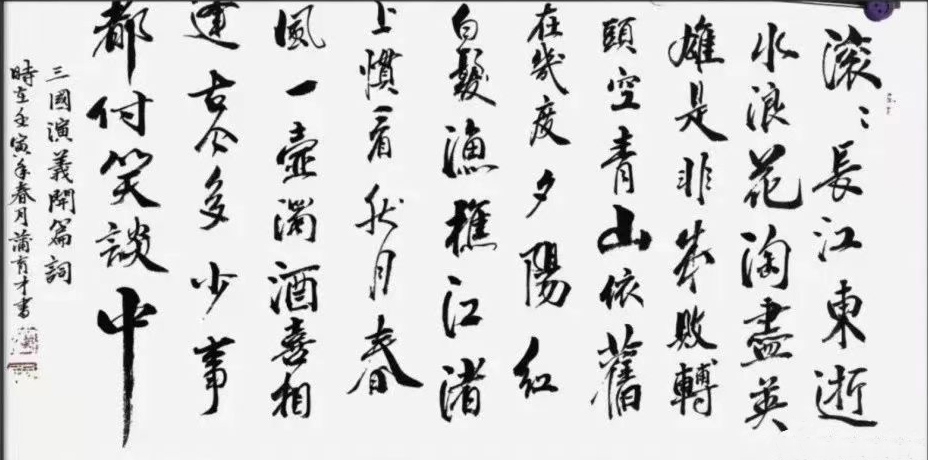 滚〻長江東逝
水浪花淘盡英
雄是非成敗轉
頭空青山依舊
在幾度夕陽紅
白髮漁樵江渚
上慣看秋月春
風一壺濁酒喜相
逢古今多少事
都付笑談中
三國演義開篇詞
時在壬寅年春月蒲育才書